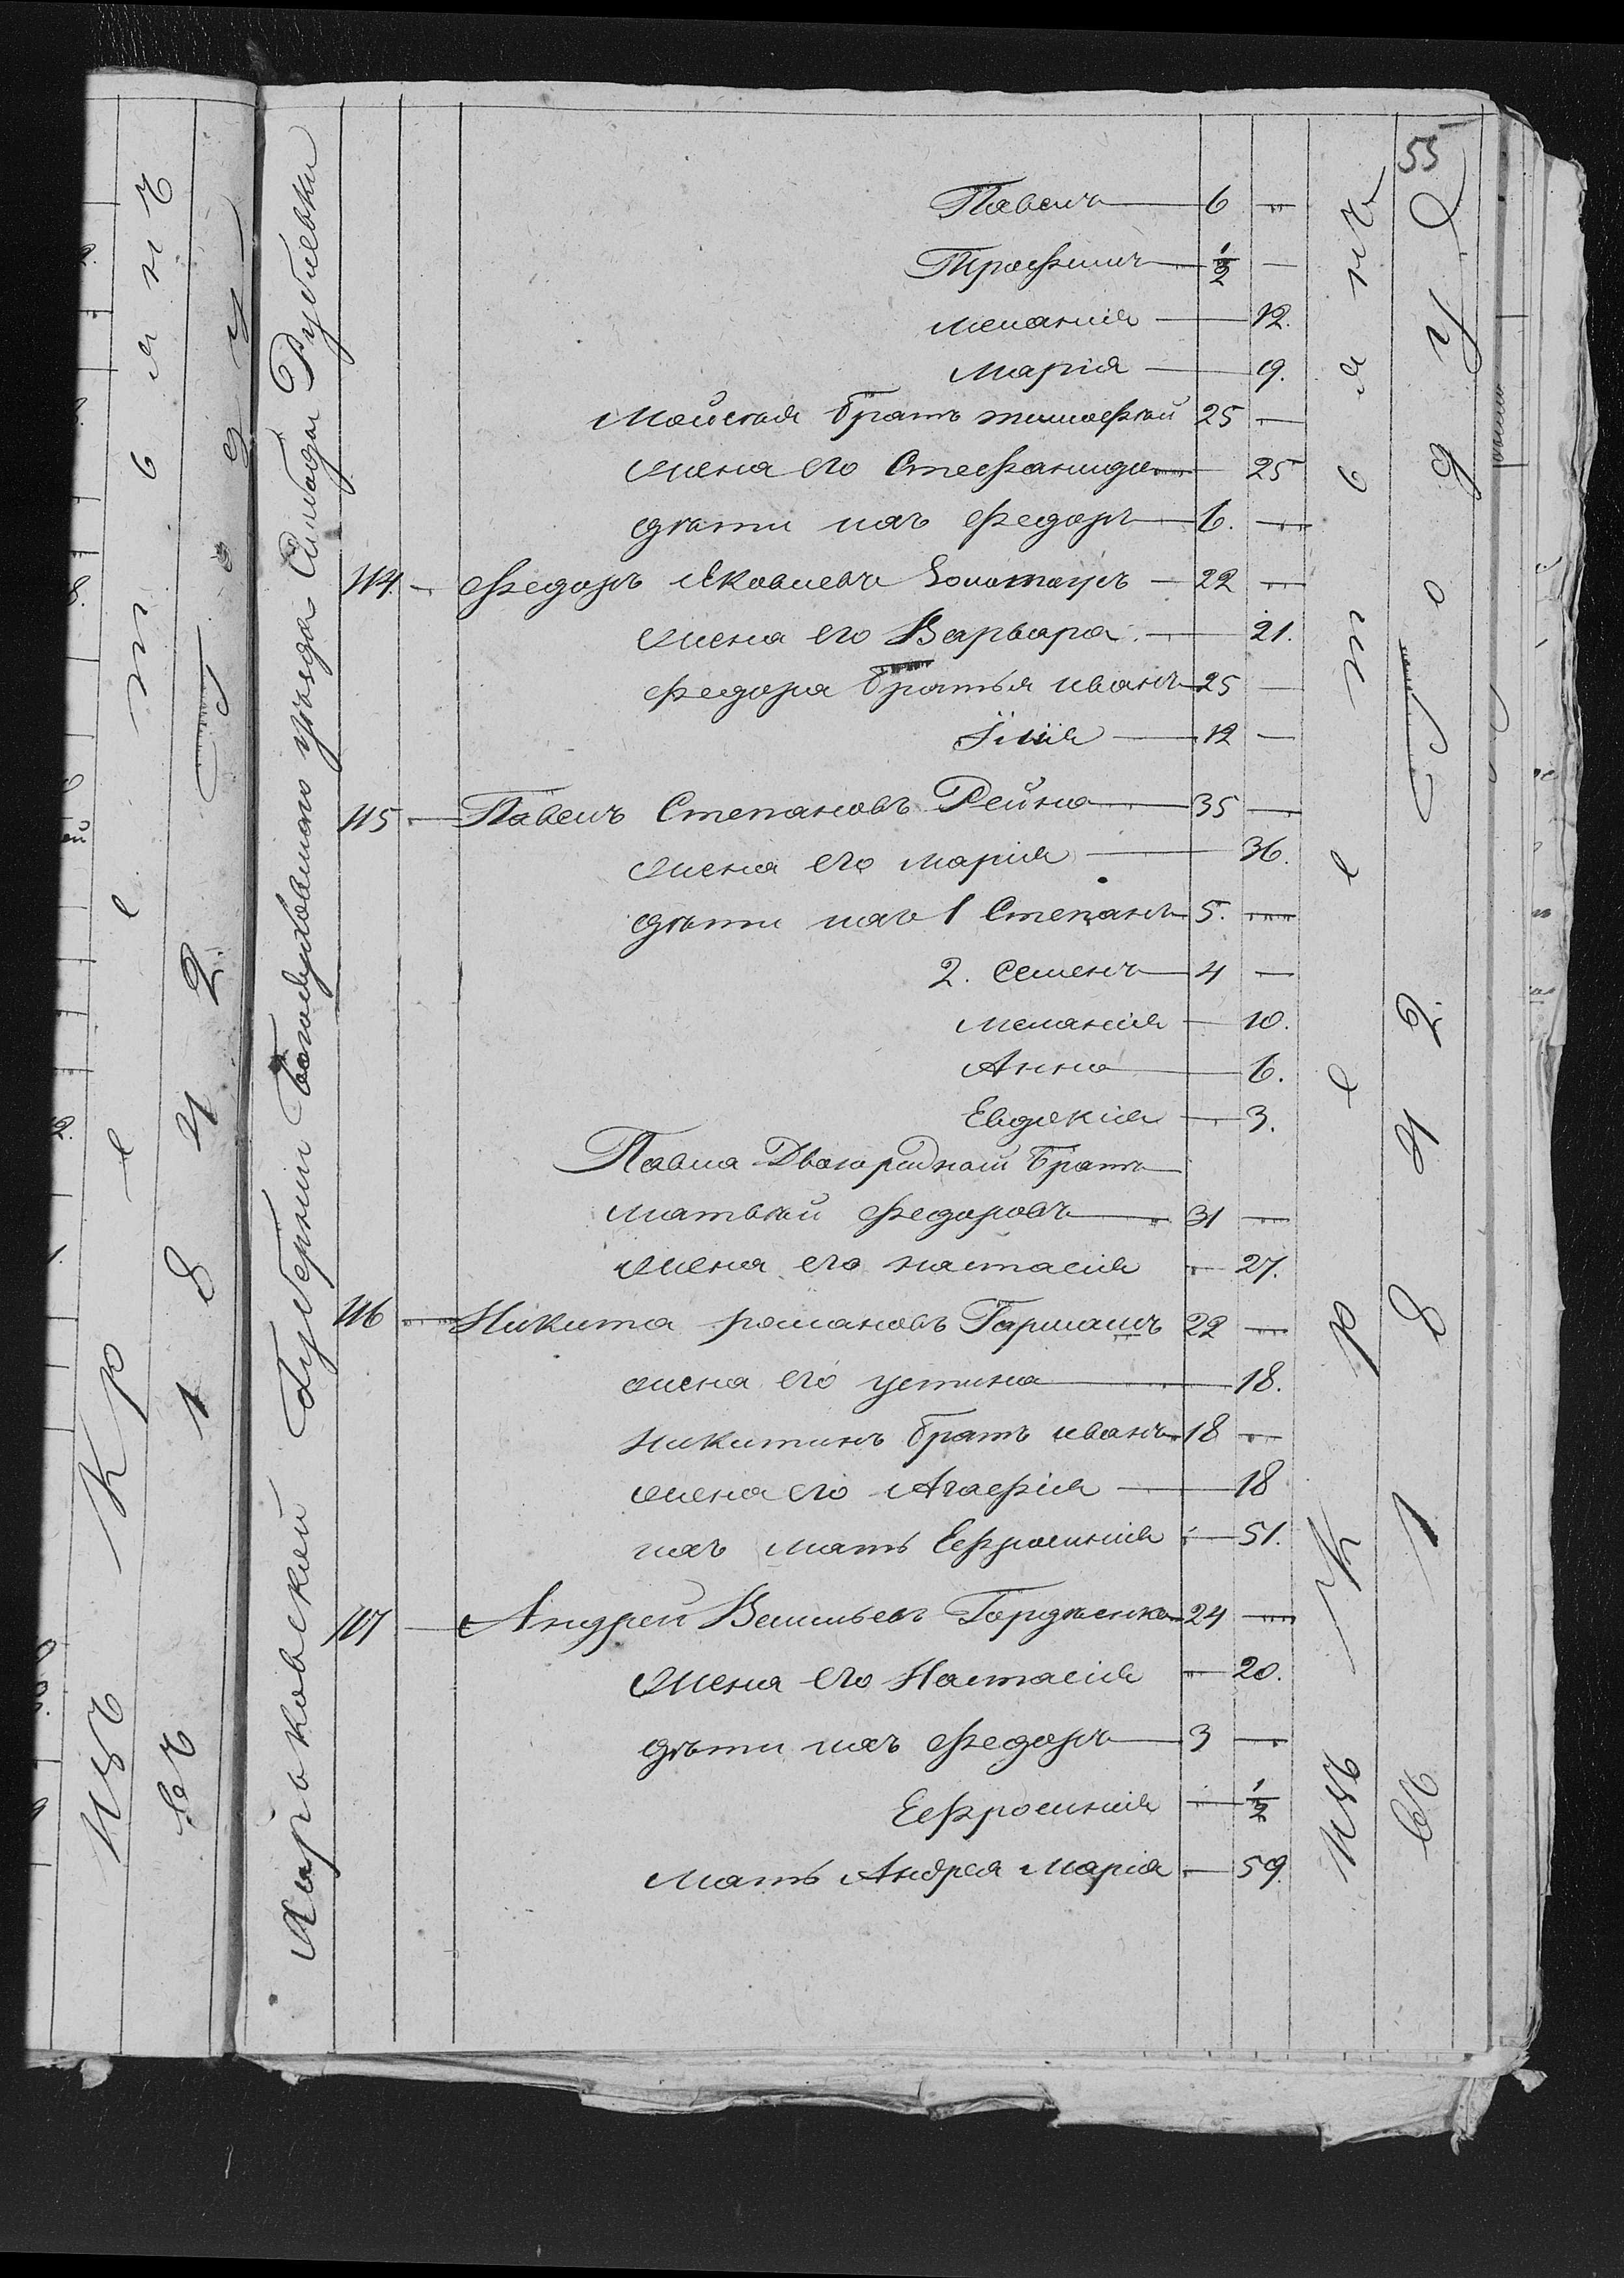 55
Харьковской Губернии Богодуховского уезда Слободы Рублевки
Павелъ — 6 —
Трофимъ — 1/2 —
меланія — 12.
Марія — 9.
Моисея братъ тимофей 25 —
жена его Стефанида — 25
дѣти ихъ федоръ — 6. —
114. — федоръ Яковлевъ Золотаръ — 22 —
жена его Варвара — 21.
федора братья иванъ — 25 —
Їлїя — 12 —
115 — Павелъ Степановъ Рейка — 35 —
жена его марія — 36.
дѣти ихъ 1 Степанъ — 5. —
2. семенъ — 4 —
меланія — 10.
Анна — 6.
Евдокія — 3.
Павла Двоюродной братъ —
матвѣй федоровъ — 31 —
жена его настасія — 27.
116 — Никита романовъ Гармашъ 22 —
жена его устина — 18.
никитинъ братъ иванъ — 18 —
жена его Агафія — 18
ихъ мать Ефросинія — 51.
117 — Андрей Васильевъ Гордѣенко — 24 —
жена его Настасія — 20.
дѣти ихъ федоръ — 3 —
Ефросинія — 1/2
мать Андрея Марія — 59.
Изъ Крестьянъ
въ 1842. Году
Изъ Крестьянъ
въ 1842. Году